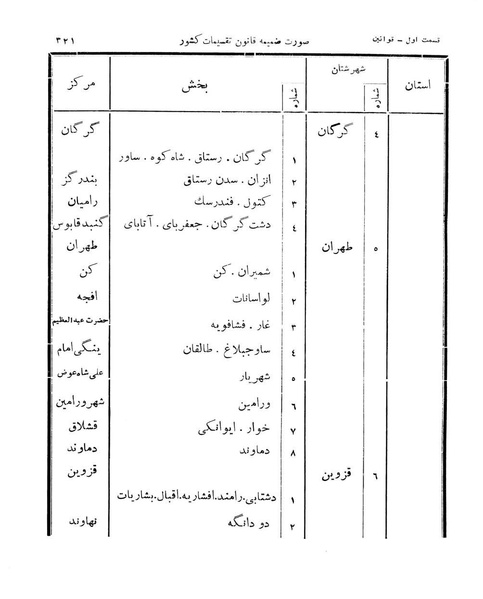 قسمت اول - قوانین صورت ضمیمه قانون تقسیمات کشور ۳۲۱
استان شهرستان شماره بخش شماره مرکز
۴ گرگان گرگان
۱ گرگان . رستاق . شاه کوه . ساور
۲ انزان . سدن رستاق بندرگز
۳ کتول . فندرسك رامیان
۴ دشت گرگان . جعفربای . آتابای گنبدقابوس
۵ طهران طهران
۱ شمیران . کن کن
۲ لواسانات افجه
۳ غار . فشافویه حضرت عبدالعظیم
۴ ساوجبلاغ . طالقان ینگی امام
۵ شهریار علی شاه عوض
۶ ورامین شهرورامین
۷ خوار . ایوانکی قشلاق
۸ دماوند دماوند
۶ قزوین قزوین
۱ دشتابی . رامند . افشاریه . اقبال . بشاریات
۲ دو دانگه نهاوند